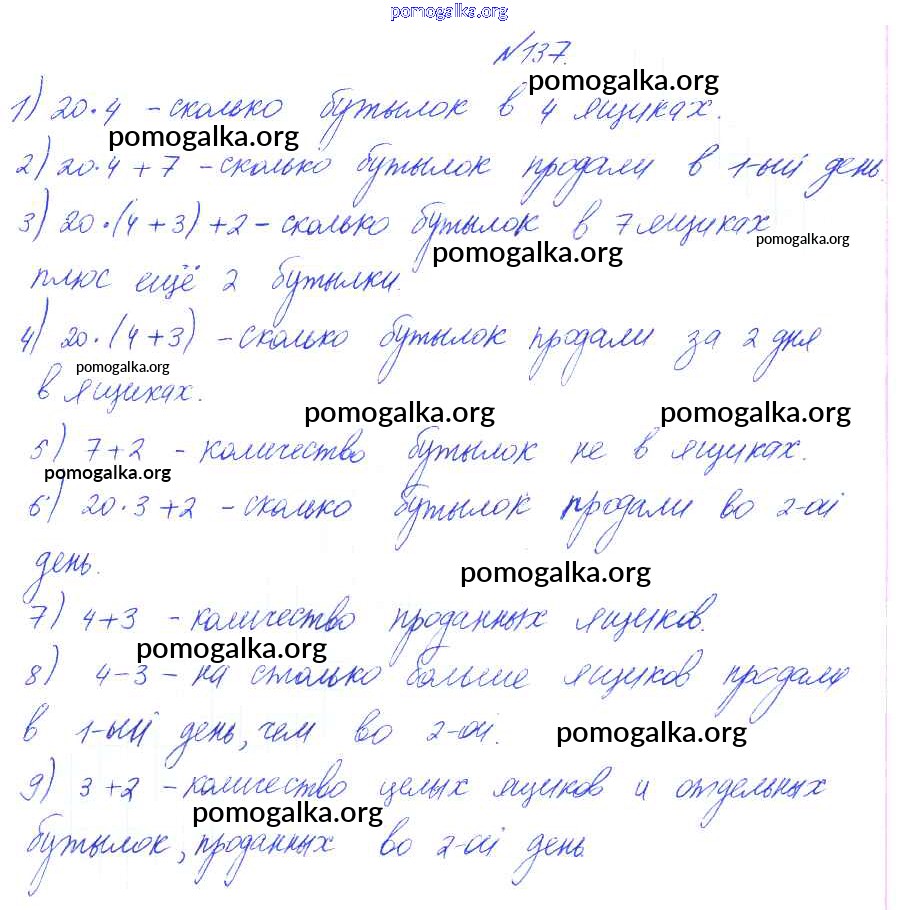 pomogalka.org
№137.
pomogalka.org
1) 20·4 – сколько бутылок в 4 ящиках.
pomogalka.org
2) 20·4+7 – сколько бутылок продали в 1-ый день.
3) 20·(4+3)+2 – сколько бутылок в 7 ящиках
pomogalka.org
pomogalka.org
плюс ещё 2 бутылки.
4) 20·(4+3) – сколько бутылок продали за 2 дня
pomogalka.org
в ящиках.
pomogalka.org pomogalka.org
5) 7+2 – количество бутылок не в ящиках.
pomogalka.org
6) 20·3+2 – сколько бутылок продали во 2-ой
день.
pomogalka.org
7) 4+3 – количество проданных ящиков.
pomogalka.org
8) 4–3 – на столько больше ящиков продали
в 1-ый день, чем во 2-ой.
pomogalka.org
9) 3+2 – количество целых ящиков и отдельных
pomogalka.org
бутылок, проданных во 2-ой день.